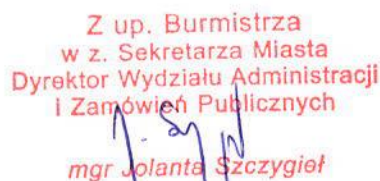 Z up. Burmistrza
w z. Sekretarza Miasta
Dyrektor Wydziału Administracji
i Zamówień Publicznych
mgr Jolanta Szczygieł